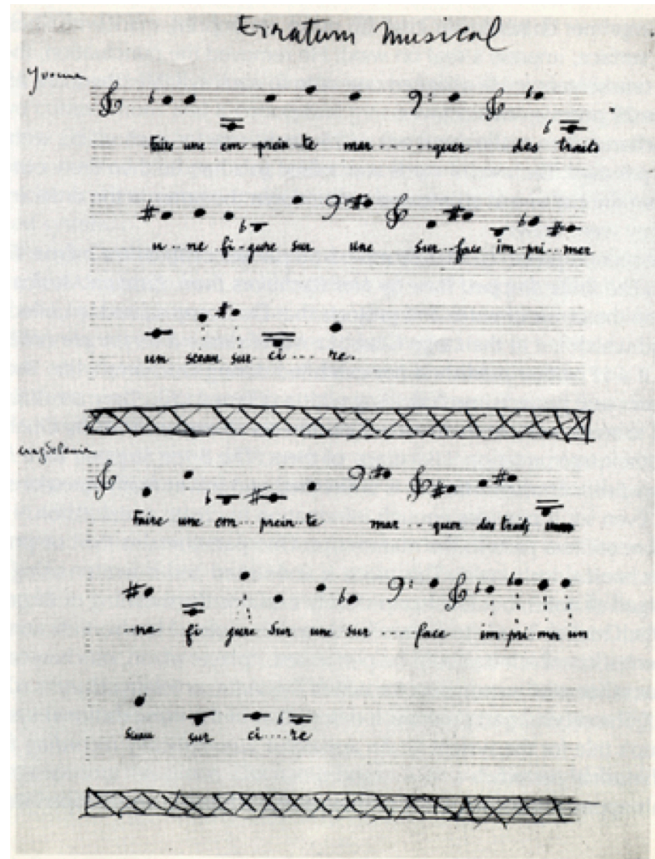 Erratum Musical
Yvonne
faire une em prein te mar ...... quer des traits
u...ne fi...gure sur une sur...face im...pri...mer
un sceau sur ci .... re.
Magdeleine
faire une em...prein...te mar ....quer des traits
...ne fi gure sur une sur ....face im...pri...mer un
sceau sur ci....re